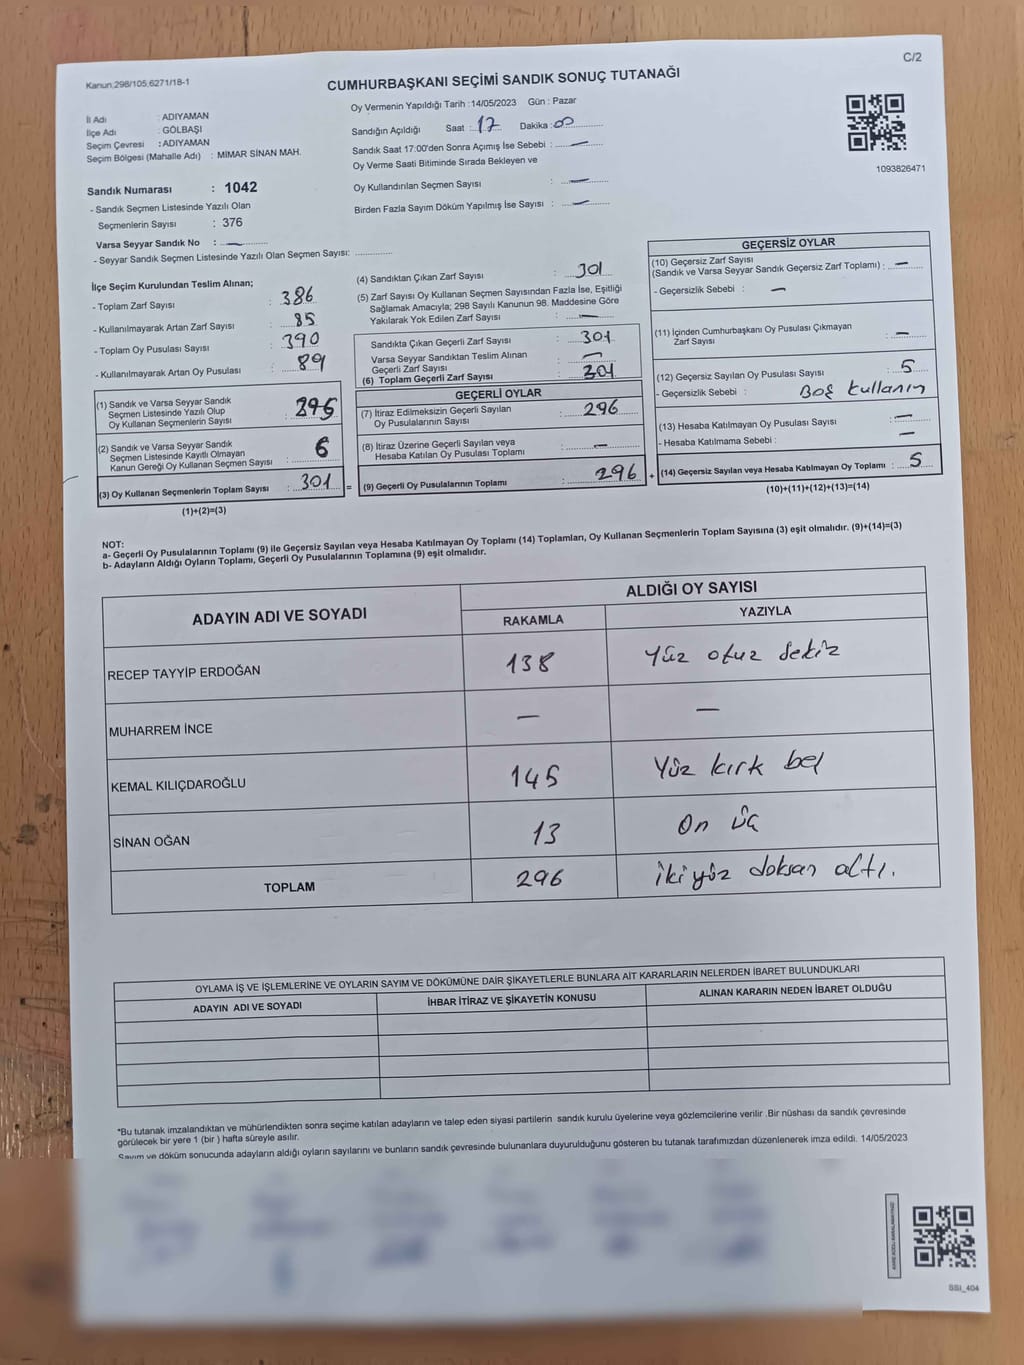 C/2
Kanun:298/105,6271/18-1
CUMHURBAŞKANI SEÇİMİ SANDIK SONUÇ TUTANAĞI
İl Adı : ADIYAMAN
İlçe Adı : GÖLBAŞI
Seçim Çevresi : ADIYAMAN
Seçim Bölgesi (Mahalle Adı) : MİMAR SİNAN MAH.
Sandık Numarası : 1042
- Sandık Seçmen Listesinde Yazılı Olan
Seçmenlerin Sayısı : 376
Varsa Seyyar Sandık No : —
- Seyyar Sandık Seçmen Listesinde Yazılı Olan Seçmen Sayısı:
Oy Vermenin Yapıldığı Tarih :14/05/2023 Gün : Pazar
Sandığın Açıldığı Saat : 17 Dakika : 00
Sandık Saat 17:00'den Sonra Açımış İse Sebebi : —
Oy Verme Saati Bitiminde Sırada Bekleyen ve
Oy Kullandırılan Seçmen Sayısı : —
Birden Fazla Sayım Döküm Yapılmış İse Sayısı : —
1093826471
İlçe Seçim Kurulundan Teslim Alınan;
- Toplam Zarf Sayısı : 386
- Kullanılmayarak Artan Zarf Sayısı : 85
- Toplam Oy Pusulası Sayısı : 390
- Kullanılmayarak Artan Oy Pusulası : 89
(1) Sandık ve Varsa Seyyar Sandık
Seçmen Listesinde Yazılı Olup
Oy Kullanan Seçmenlerin Sayısı : 295
(2) Sandık ve Varsa Seyyar Sandık
Seçmen Listesinde Kayıtlı Olmayan
Kanun Gereği Oy Kullanan Seçmen Sayısı : 6
(3) Oy Kullanan Seçmenlerin Toplam Sayısı : 301 =
(1)+(2)=(3)
(4) Sandıktan Çıkan Zarf Sayısı : 301
(5) Zarf Sayısı Oy Kullanan Seçmen Sayısından Fazla İse, Eşitliği
Sağlamak Amacıyla; 298 Sayılı Kanunun 98. Maddesine Göre
Yakılarak Yok Edilen Zarf Sayısı : —
Sandıkta Çıkan Geçerli Zarf Sayısı : 301
Varsa Seyyar Sandıktan Teslim Alınan
Geçerli Zarf Sayısı : —
(6) Toplam Geçerli Zarf Sayısı : 301
GEÇERLİ OYLAR
(7) İtiraz Edilmeksizin Geçerli Sayılan
Oy Pusulalarının Sayısı : 296
(8) İtiraz Üzerine Geçerli Sayılan veya
Hesaba Katılan Oy Pusulası Toplamı : —
(9) Geçerli Oy Pusulalarının Toplamı : 296 +
GEÇERSİZ OYLAR
(10) Geçersiz Zarf Sayısı
(Sandık ve Varsa Seyyar Sandık Geçersiz Zarf Toplamı) : —
- Geçersizlik Sebebi : —
(11) İçinden Cumhurbaşkanı Oy Pusulası Çıkmayan
Zarf Sayısı : —
(12) Geçersiz Sayılan Oy Pusulası Sayısı : 5
- Geçersizlik Sebebi : Boş kullanım
(13) Hesaba Katılmayan Oy Pusulası Sayısı : —
- Hesaba Katılmama Sebebi : —
(14) Geçersiz Sayılan veya Hesaba Katılmayan Oy Toplamı : 5
(10)+(11)+(12)+(13)=(14)
NOT:
a- Geçerli Oy Pusulalarının Toplamı (9) ile Geçersiz Sayılan veya Hesaba Katılmayan Oy Toplamı (14) Toplamları, Oy Kullanan Seçmenlerin Toplam Sayısına (3) eşit olmalıdır. (9)+(14)=(3)
b- Adayların Aldığı Oyların Toplamı, Geçerli Oy Pusulalarının Toplamına (9) eşit olmalıdır.
ADAYIN ADI VE SOYADI ALDIĞI OY SAYISI
RAKAMLA YAZIYLA
RECEP TAYYİP ERDOĞAN 138 Yüz otuz sekiz
MUHARREM İNCE — —
KEMAL KILIÇDAROĞLU 145 Yüz kırk beş
SİNAN OĞAN 13 On üç
TOPLAM 296 iki yüz doksan altı.
OYLAMA İŞ VE İŞLEMLERİNE VE OYLARIN SAYIM VE DÖKÜMÜNE DAİR ŞİKAYETLERLE BUNLARA AİT KARARLARIN NELERDEN İBARET BULUNDUKLARI
ADAYIN ADI VE SOYADI İHBAR İTİRAZ VE ŞİKAYETİN KONUSU ALINAN KARARIN NEDEN İBARET OLDUĞU
*Bu tutanak imzalandıktan ve mühürlendikten sonra seçime katılan adayların ve talep eden siyasi partilerin sandık kurulu üyelerine veya gözlemcilerine verilir .Bir nüshası da sandık çevresinde
görülecek bir yere 1 (bir ) hafta süreyle asılır.
Sayım ve döküm sonucunda adayların aldığı oyların sayılarını ve bunların sandık çevresinde bulunanlara duyurulduğunu gösteren bu tutanak tarafımızdan düzenlenerek imza edildi. 14/05/2023
SSİ_404